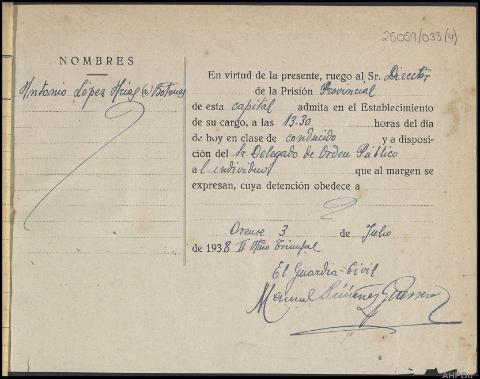 25059/033(4)
NOMBRES
Antonio López Arias (a)
En virtud de la presente, ruego al Sr. Director
de la Prisión Provincial
de esta capital admita en el Establecimiento
de su cargo, a las 13.30 horas del día
de hoy en clase de conducido y a disposi-
ción del Sr. Delegado de Orden Público
a l individuo que al margen se
expresan, cuya detención obedece a
Orense 3 de Julio
de 1938 II Año Triunfal
El Guardia-Civil
Manuel Guerrero
AHPOu